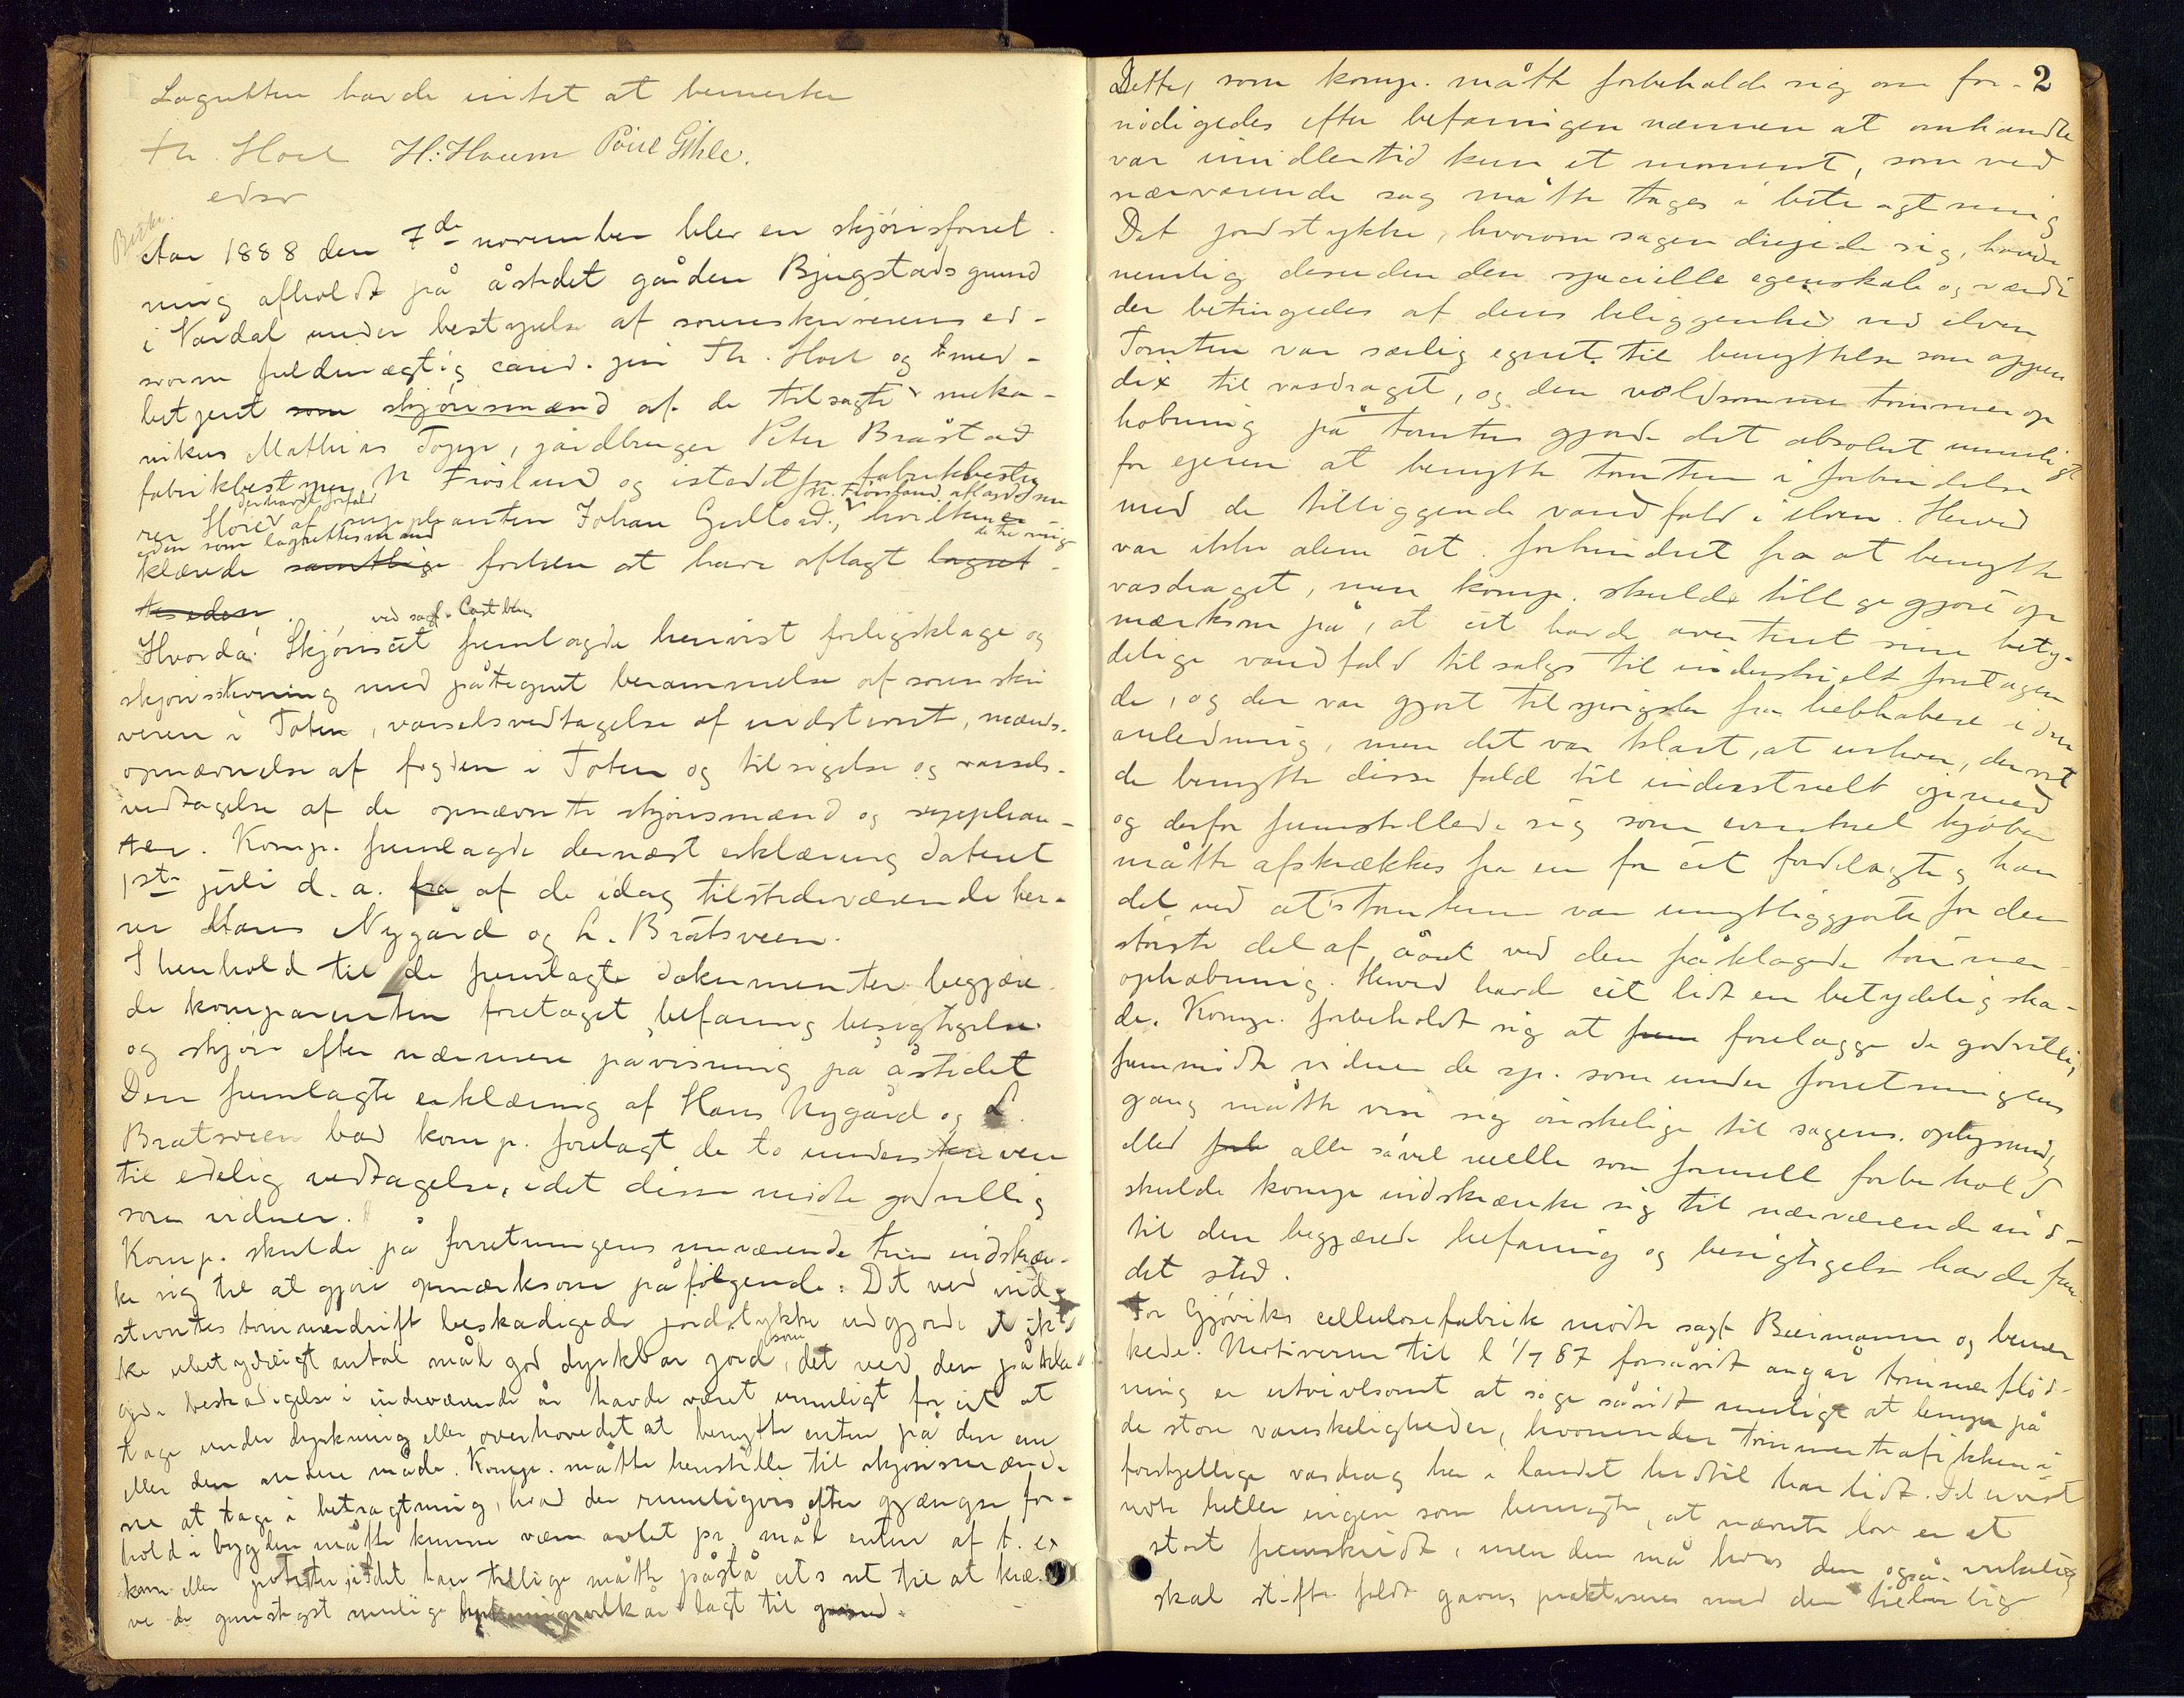 Lagretten havde intet at bemerke
Th. Hoel H: Houm Povel Gihle.
edsv
Aar 1888 den 7de november blev en skjønsforret-
ning afholdt på åstedet gården Bjugstadsgrund
i Vardal under bestyrelse af sorenskriverens ed-
svorne fuldmægtig cand. juri Th. Hoel og med-
betjent som skjønsmænd af de tilsagte meka-
nikus Mathias Topp, gårdbruger Peter Bråstad
fabrikbestyrer N Frøsland og istedetfor fabrikbesty-
rer Hoie der havde forfald af suppleanten Johan Gullord, hvilken
eden som lagrettesmænd N. Frøsland aflagde mens de tre øvrige
klærede samtlige forhen at have aflagt lagret-
teseden.
Hvorda: Skjønscit ved sagf. Castberg fremlagde henvist forligsklage og
skjønsstevning med påtegnet berammelse af sorenskri
veren i Toten, varselsvedtagelse af indstevnt, mænds-
opnævnelse af fogden i Toten og tilsigelse og varsels-
vedtagelse af de opnævnte skjønsmænd og supplean-
ter. Komp. fremlagde dernæst erklæring dateret
1ste juli d. a. fra af de idag tilstedeværende her-
rer Hans Nygård og L. Bråtsveen.
I henhold til de fremlagte dokumenter begjære-
de komparenten foretaget befaring besigtigelse
og skjøn efter nærmere påvisning på åstedet
Den fremlagte erklæring af Hans Nygård og L.
Bratsveen bad komp. forelagt de to underskrivere
til edelig vedtagelse, idet disse mødte godvillig
som vidner.
Komp. skulde på forretningens nuværende trin indskræn-
ke sig til at gjøre opmærksom på følgende: Det ved ind-
stevntes tømmerdrift beskadigede jordstykke udgjorde et ik-
ke ubetydeligt antal mål god dyrkbar jord, som det ved den påkla-
gede beskadigelse i indeværende år havde været umuligt for cit at
tage under dyrkning eller overhovedet at benytte enten på den ene
eller den anden måde. Komp. måtte henstille til skjønsmænde-
ne at tage i betragtning, hvad der rimeligvis efter gjængse for-
hold i bygden måtte kunne være avlet pr. mål enten af t. ex
korn eller poteter, idet han tillige måtte påstå cits ret til at kræ-
ve de gunstigst mulige dyrkningsvilkår lagt til grund.
2
Dette, som komp. måtte forbeholde sig om for-
nødigedes efter befaringen nærmere at omhandle
var imidlertid kun et moment, som ved
nærværende sag måtte tages i betragtning
Det jordstykke, hvorom sagen dreiede sig, havde
nemlig desuden den specielle egenskab og værdi
der betingedes af dens beliggenhed ved elven
Tomten var særlig egnet til benyttelse som appen
dix til vasdraget, og den voldsomme tømmerop
hobning på tomten gjorde det absolut umuligt
for eieren at benytte tomten i forbindelse
med de tilliggende vandfald i elven. Herved
var ikke alene cit. forhindret fra at benytte
vasdraget, men komp. skulde tillige gjøre op
mærksom på, at cit havde averteret sine bety-
delige vandfald tilsalgs til industrielt foretagen
de, og der var gjort tilspørgsler fra liebhabere i den
anledning, men det var klart, at enhver, der vil
de benytte disse fald til industrielt øiemed
og derfor fremstillede sig som eventuel kjøber
måtte afskrækkes fra en for cit fordelagtig han
del ved at tomten var unyttiggjorte for den
største del af året ved den påklagede tømmer-
ophobning. Herved havde cit lidt en betydelig ska-
de. Komp. forbeholdt sig at frem forelægge de godvillig
fremmødte vidner de sp. som under forretningens
gang måtte vise sig ønskelige til sagens oplysning
Med forb alle såvel reelle som formelle forbehold
skulde komp indskrænke sig til nærværende ind-
til den begjærede befaring og besigtigelse havde fun-
det sted.
For Gjøviks cellulosefabrik mødte sagf. Beermann og bemer
kede: Motiverne til l 1/7 87 forsåvidt angår tømmerflød-
ning er utvivlsomt at søge såvidt muligt at lempe på
de store vanskeligheder, hvorunder tømmertrafikken i
forskjellige vasdrag her i landet hidtil har lidt. Det er vist
nok heller ingen som benegter, at nævnte lov er et
stort fremskridt, men den må hvis den også virkelig
skal stifte fuldt gavn, praktiseres med den tilbørlige